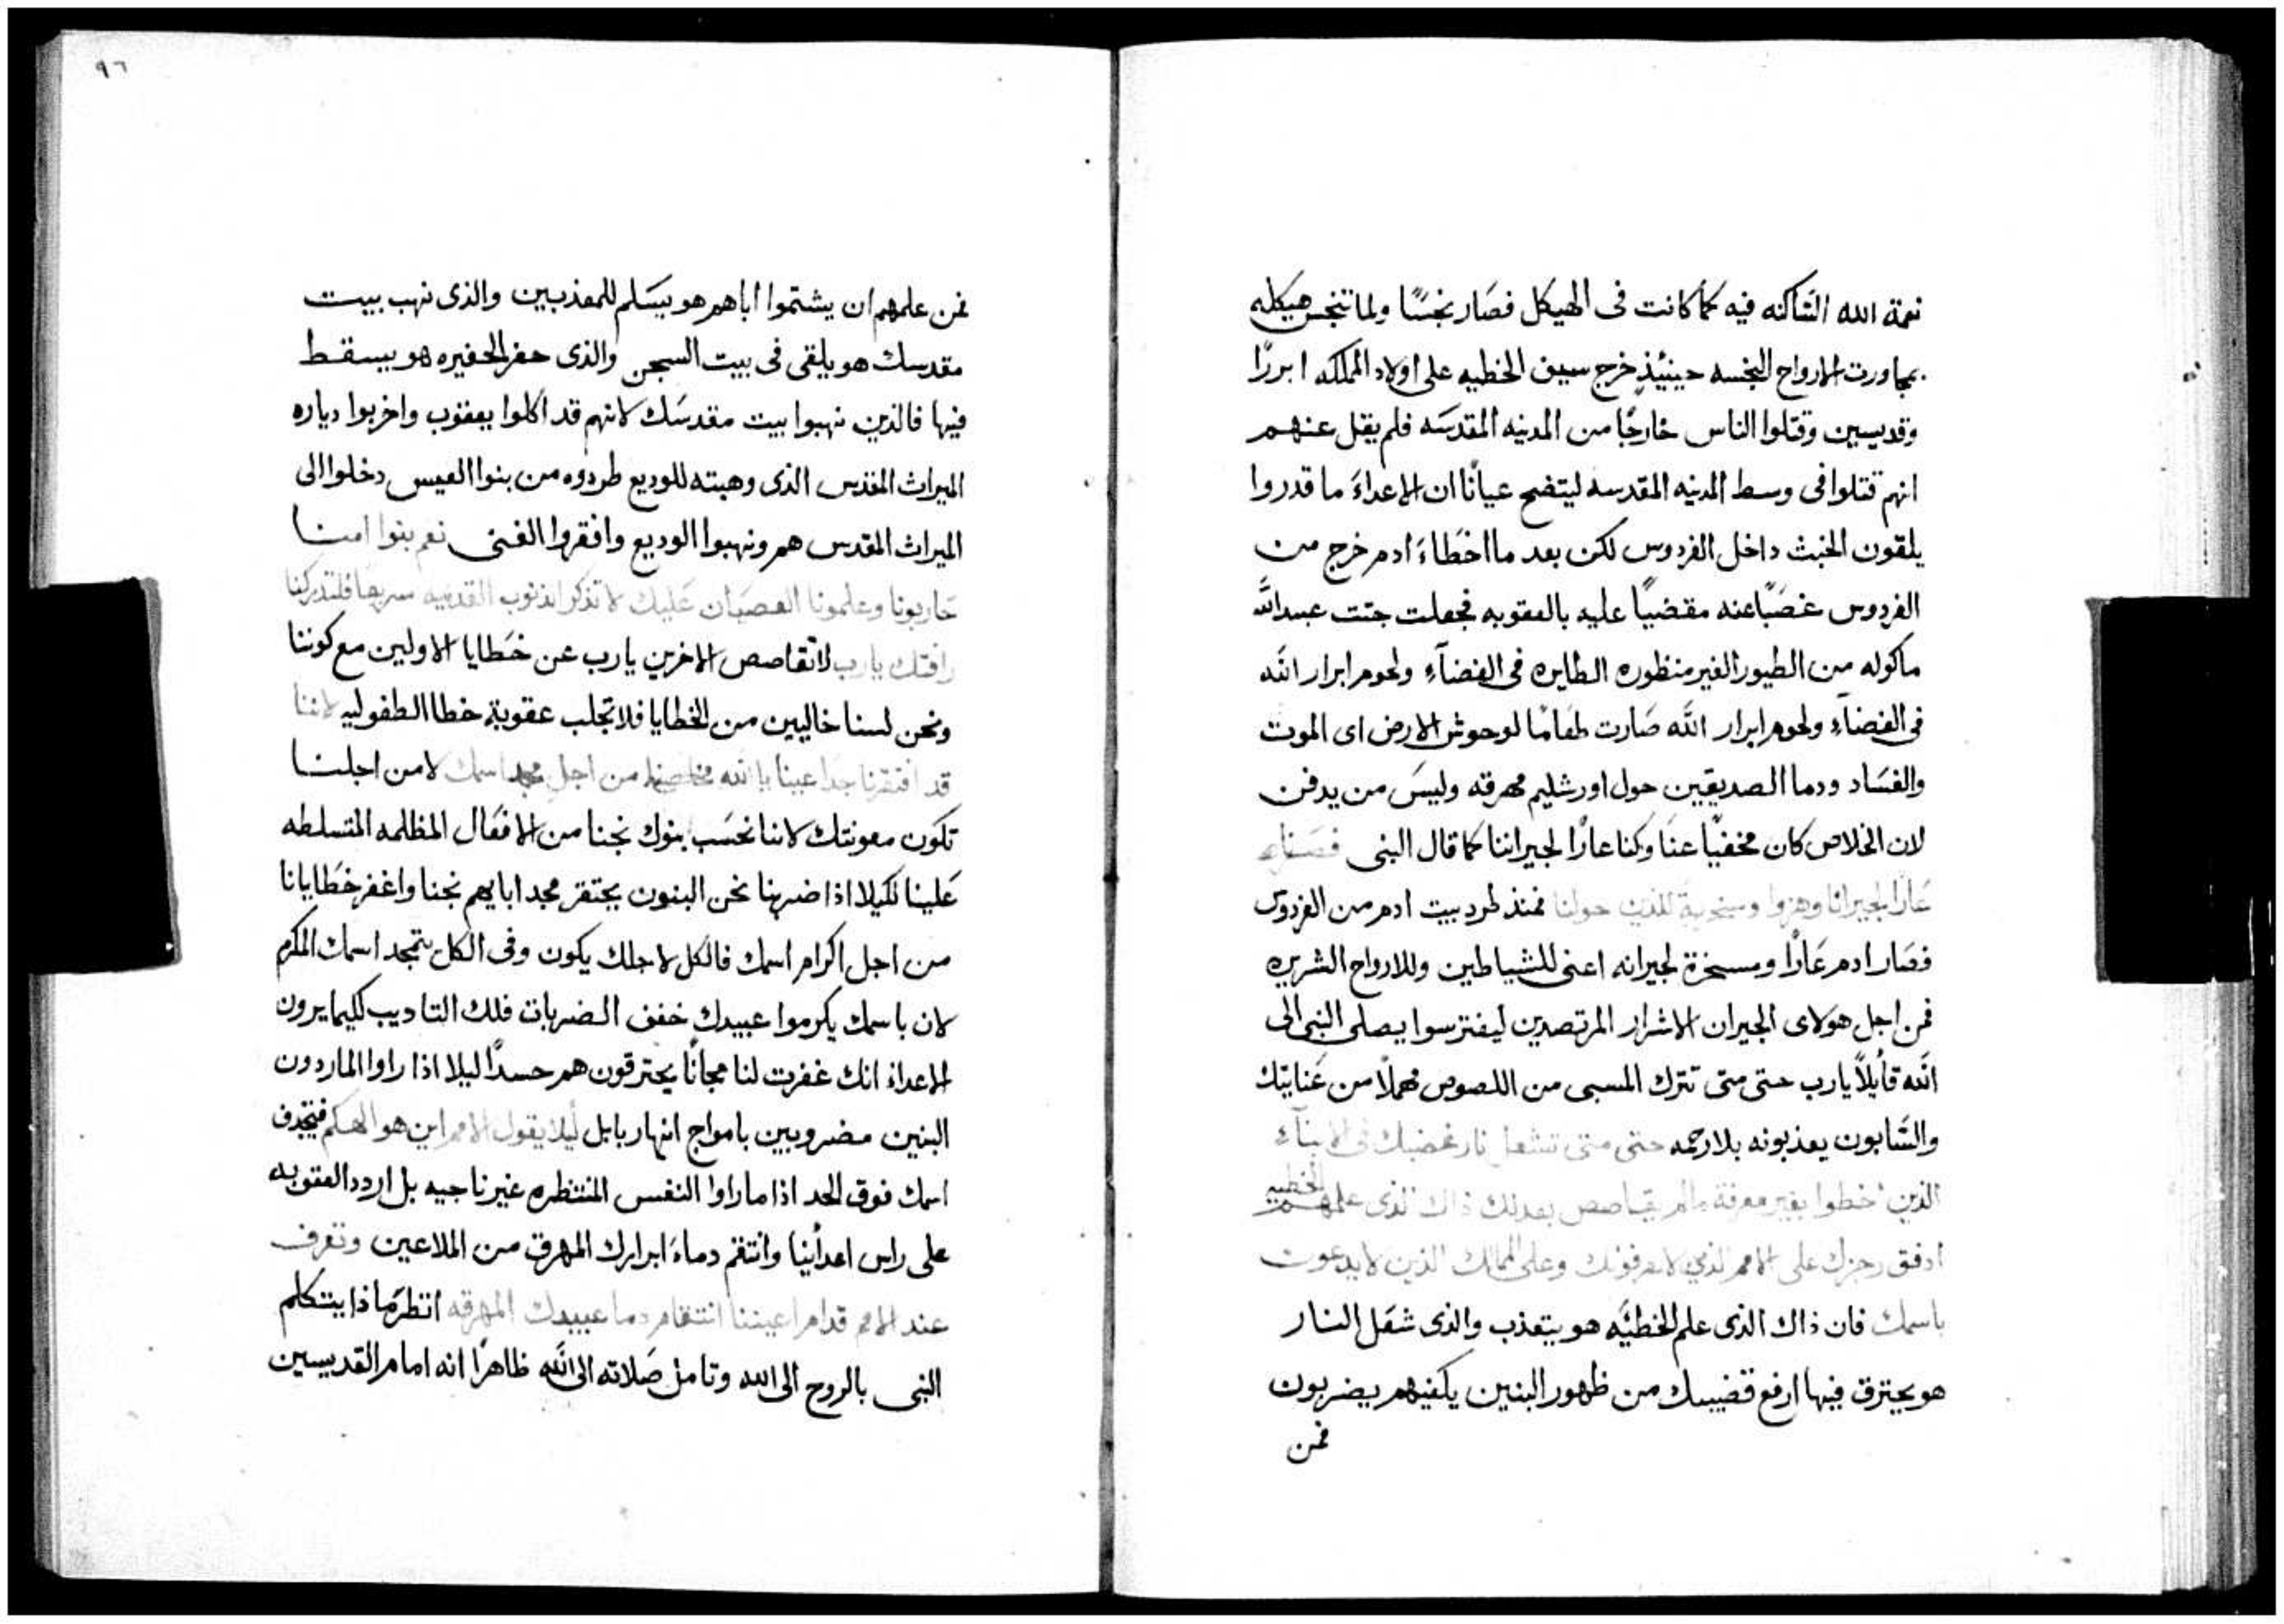 نعمة الله الساكنه فيه كما كانت فى الهيكل فصار نجسًا ولما تنجس هيكله
بمجاورت الارواح النجسه حينيئذٍ خرج سيف الخطيه على اولاد المملكه ابررًا
وقديسيين وقتلوا الناس خارجًا من المدنيه المقدسه فلم يقل عنهم
انهم قتلوا فى وسط المدنيه المقدسه ليتضح عيانًا ان الاعداءَ ما قدروا
يلقون الخبث داخل الفردوس لكن بعد ما اخطاءَ ادم خرج من
الفردوس غصبًا عنه مقضيًا عليه بالعقوبه فجعلت جتت عبيد الله
ماكوله من الطيور الغير منظوره الطايره فى الفضآءِ ولحوم ابرار الله
فى الفضآءِ ولحوم ابرار الله صارت طعامًا لوحوش الارض اى الموت
والفساد ودما الصديقيين حول اورشليم مهرقه وليس من يدفن
لان الخلاص كان مخفيًا عنا وكنا عارًا لجيراننا كما قال النبى فصرنا
عارًا لجيراننا وهزوا وسخرية للذين حولنا فمنذ طرد بيت ادم من الفردوس
فصار ادم عارًا ومسخرة لجيرانه اعنى للشياطين وللارواح الشريره
فمن اجل هولاى الجيران الاشرار المرتصدين ليفترسوا يصلى النبى الى
الله قايلاً يارب حتى متى تترك المسبى من اللصوص مهملاً من عنايتك
والسابون يعذبونه بلا رحمه حتى متى تشعل نار غضبك فى الابنآء
الذين اخطوا بغير معرفة ولم يقاصص بعدلك ذاك الذى علمهم الخطيه
ادفق رجزك على الامم الذين لا يعرفونك وعلى الممالك الذين لا يدعون
باسمك فان ذاك الذى علم الخطيَّه هو يتعذب والذى شعل النار
هو يحترق فيها ارفع قضيبك من ظهور البنين يكفيهم يضربون
فمن
٩٦
فمن علمهم ان يشتموا اباهم هو يسلم للمعذبين والذى نهب بيت
مقدسك هو يلقى فى بيت السجن والذى حفر الحفيره هو يسقط
فيها فالذين نهبوا بيت مقدسك لانهم قد اكلوا يعقوب واخربوا دياره
الميراث المقدس الذى وهبته للوديع طردوه من بنوا العيس دخلوا الى
الميراث المقدس هم ونهبوا الوديع وافقروا الغنى نعم بنوا امنا
حاربونا وعلمونا العصيان عليك لا تذكر الذنوب القديمه سريعا فلتدركنا
رافتك يارب لا تقاصص الاخرين يارب عن خطايا الاولين مع كوننا
ونحن لسنا خاليين من الخطايا فلا تجلب عقوبة خطا الطفوليه لاننا
قد افتقرنا جدا عينا يا الله مخلصنا من اجل مجد اسمك لا من اجلنا
تكون معونتك لاننا نحسب بنوك نجنا من الافعال المظلمه المتسلطه
علينا لكيلا اذا ضربنا نحن البنون يحتقر مجد ابايهم نجنا واغفر خطايانا
من اجل اكرام اسمك فالكل لاجلك يكون وفى الكل يتمجد اسمك المكرم
لان باسمك يكرموا عبيدك خفف الضربات فلك التاديب لكيما يرون
الاعداءَ انك غفرت لنا مجانًا يحترقون هم حسدًا ليلا اذا راوا الماردون
البنين مضروبين بامواج انهار بابل ليلا يقول الامم اين هو الهكم فيجدف
اسمك فوق الحد اذا ما راوا النفس المنتظره غير ناجيه بل اردد العقوبه
على راس اعدأينا وانتقم دماءَ ابرارك المهرق من الملاعين وتعرف
عند الامم قدام اعيننا انتقام دما عبيدك المهرقه انظر ماذا يتكلم
النبى بالروح الى الله وتامل صلاته الى الله ظاهرًا انه امام القديسين